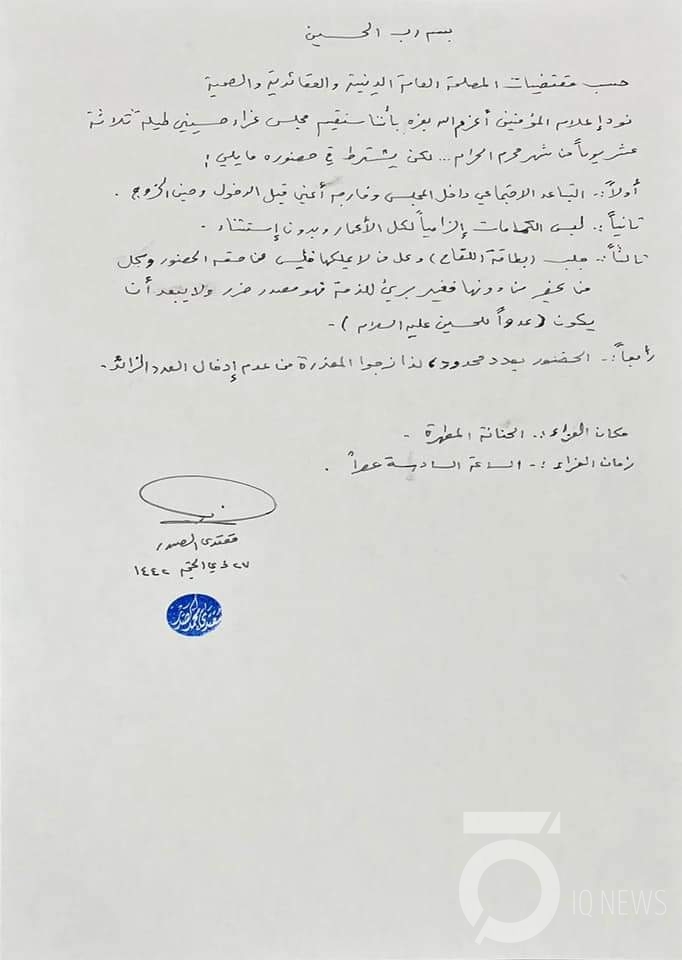 بسم رب الحسين
حسب مقتضيات المصلحة العامة الدينية والعقائدية والصحية
نود إعلام المؤمنين أعزهم الله بعزه بأننا سنقيم مجلس عزاء حسيني طيلة ثلاثة
عشر يوماً من شهر محرم الحرام... لكن يشترط في حضوره ما يلي:
أولاً:. التباعد الاجتماعي داخل المجلس وخارجه أعني قبل الدخول وحين الخروج.
ثانياً:. لبس الكمامات إلزامياً لكل الأعمار وبدون إستثناء.
ثالثاً:. جلب (بطاقة اللقاح) وعلى من لا يملكها فليس من حقه الحضور وبكل
من يحضر من دونها فغير بريئ للذمة فهو مصدر ضرر ولا يبعد أن
يكون (عدواً للحسين عليه السلام).
رابعاً:. الحضور بعدد محدود، لذا نرجوا المعذرة من عدم إدخال العدد الزائد.
مكان العزاء:. الحنانة المطهرة.
زمان العزاء:. الساعة السادسة عصراً.
مقتدى الصدر
٢٧ ذي الحجة ١٤٤٢
IQ NEWS